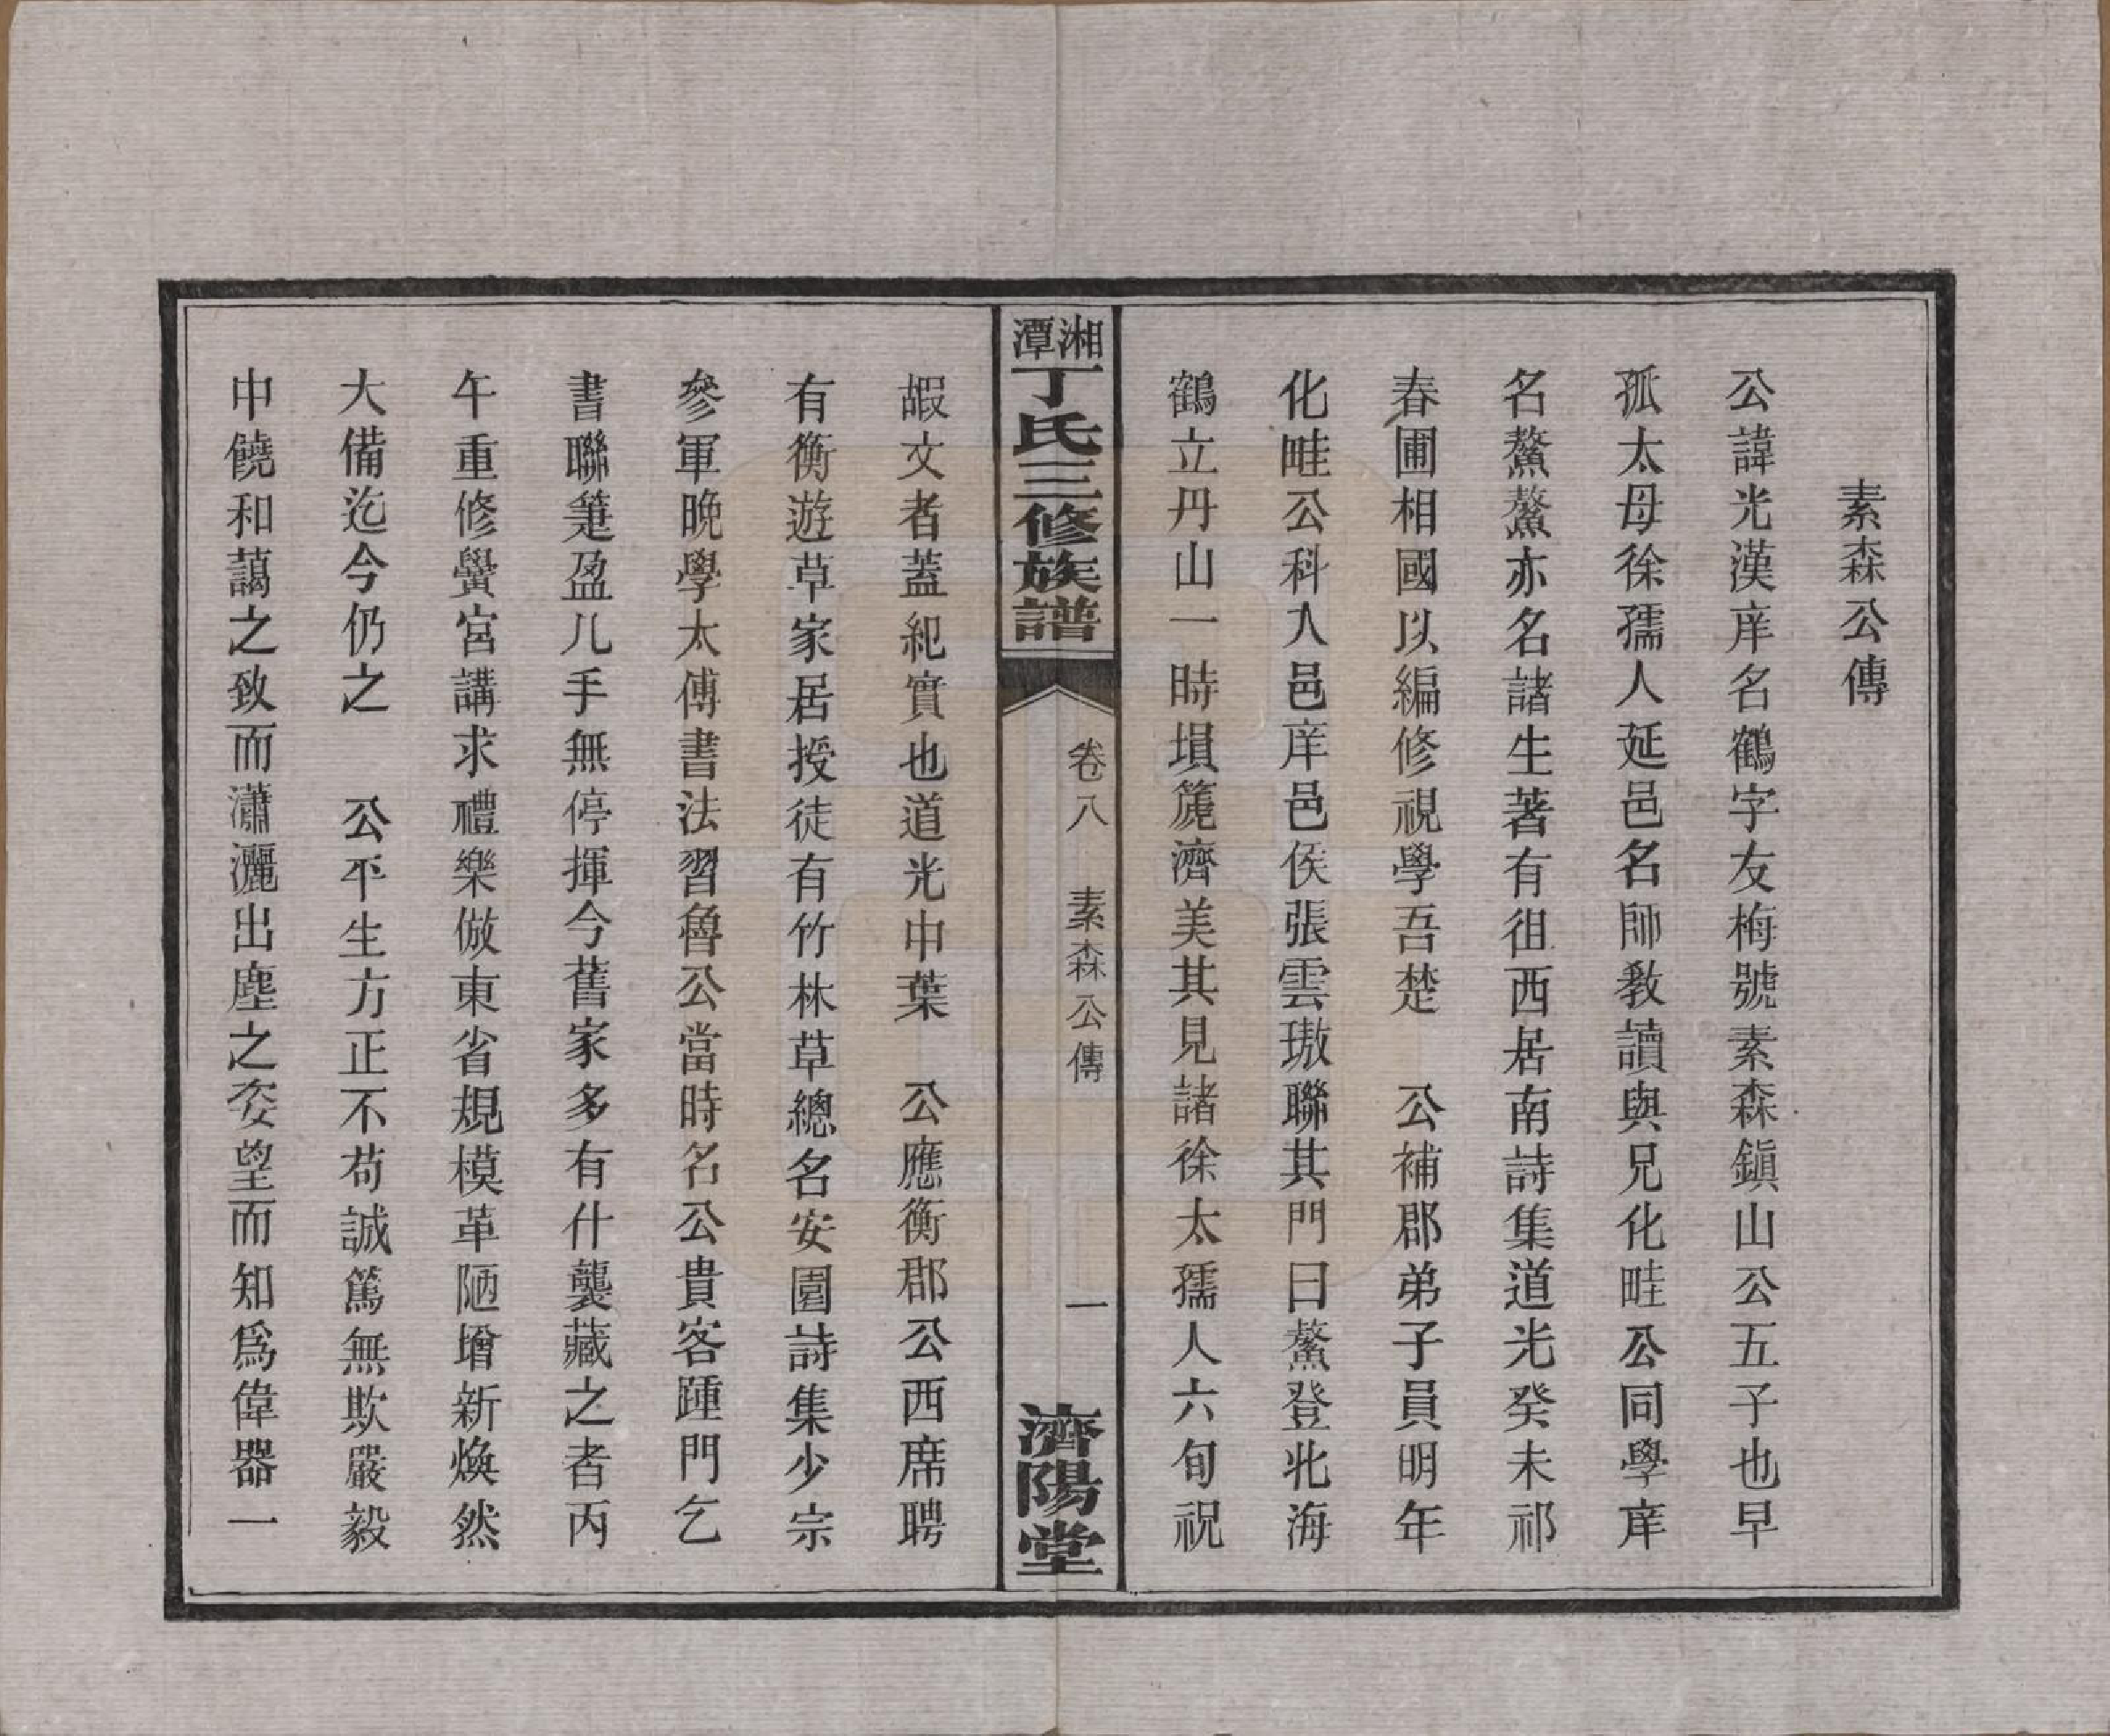 素森公傳
公諱光漢庠名鶴字友梅號素森鎭山公五子也早
孤太母徐孺人延邑名師敎讀與兄化畦公同學庠
名鰲鰲亦名諸生著有徂西居南詩集道光癸未祁
春圃相國以編修視學吾楚　公補郡弟子員明年
化畦公科入邑庠邑侯張雲璈聯其門曰鰲登北海
鶴立丹山一時塤篪濟美其見諸徐太孺人六旬祝
湘潭丁氏三修族譜　卷八　素森公傳　一　濟陽堂
嘏文者蓋紀實也道光中葉　公應衡郡公西席聘
有衡遊草家居授徒有竹林草總名安園詩集少宗
參軍晚學太傅書法習魯公當時名公貴客踵門乞
書聯箑盈几手無停揮今舊家多有什襲藏之者丙
午重修黌宮講求禮樂倣東省規模革陋增新煥然
大備迄今仍之　公平生方正不苟誠篤無欺嚴毅
中饒和藹之致而瀟灑出塵之姿望而知爲偉器一